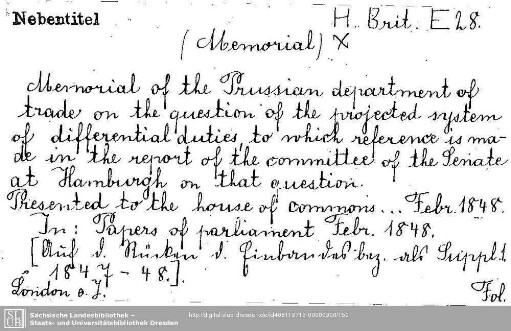 Nebentitel
H. Brit. E 28.
(Memorial) X
Memorial of the Prussian department of
trade on the question of the projected system
of differential duties, to which reference is ma-
de in the report of the committee of the Senate
at Hamburgh on that question.
Presented to the house of commons... Febr. 1848.
In: Papers of parliament Febr. 1848.
[Auf d. Rücken d. Einbandes bez. als Suppl.
1847-48.].
London o. J.
Fol.
Sächsische Landesbibliothek –
Staats- und Universitätsbibliothek Dresden